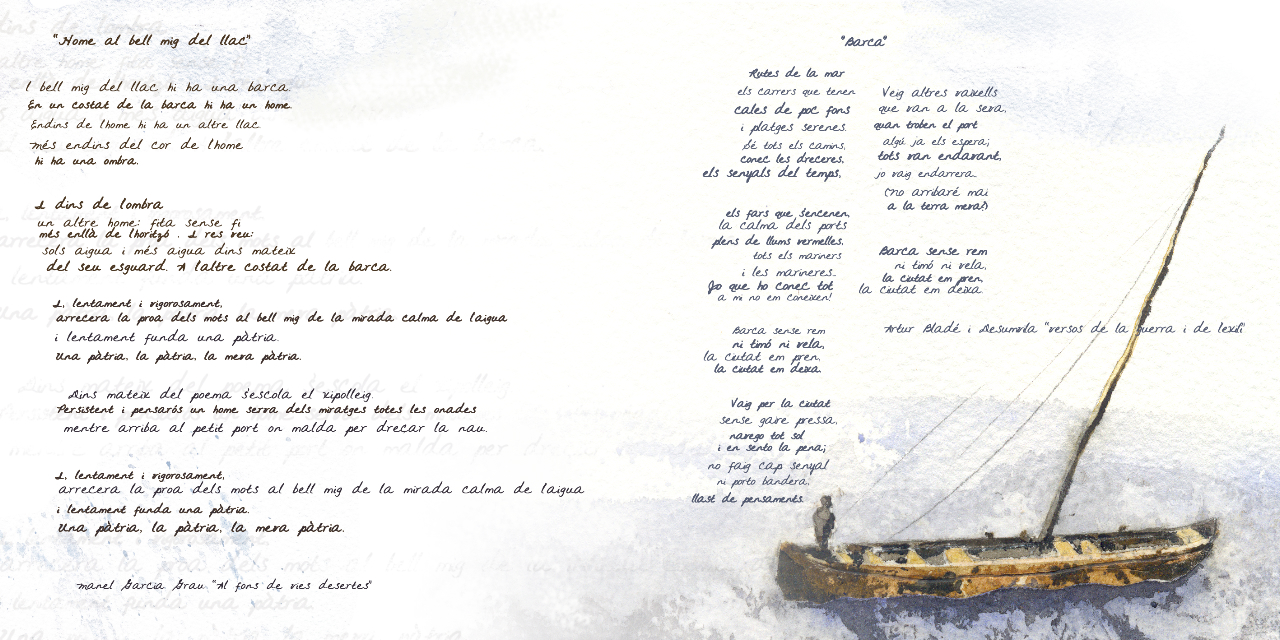 "Home al bell mig del llac"
I bell mig del llac hi ha una barca.
En un costat de la barca hi ha un home.
Endins de lhome hi ha un altre llac
més endins del cor de lhome
hi ha una ombra.
I dins de lombra
un altre home: fita sense fi
més enllà de lhoritzó . I res veu:
sols aigua i més aigua dins mateix
del seu esguard. A laltre costat de la barca.
I, lentament i vigorosament,
arrecera la proa dels mots al bell mig de la mirada calma de laigua
i lentament funda una pàtria.
Una pàtria, la pàtria, la meva pàtria.
Dins mateix del poema sescola el xipolleig.
Persistent i pensarós un home serva dels miratges totes les onades
mentre arriba al petit port on malda per dreçar la nau.
I, lentament i vigorosament,
arrecera la proa dels mots al bell mig de la mirada calma de laigua
i lentament funda una pàtria.
Una pàtria, la pàtria, la meva pàtria.
Manel Garcia Grau "Al fons de vies desertes"
"Barca"
Rutes de la mar
els carrers que tenen
cales de poc fons
i platges serenes.
Sé tots els camins,
conec les dreceres,
els senyals del temps,
els fars que sencenen,
la calma dels ports
plens de llums vermelles.
tots els mariners
i les marineres...
Jo que ho conec tot
a mi no em coneixen!
Barca sense rem
ni timó ni vela,
la ciutat em pren,
la ciutat em deixa.
Vaig per la ciutat
sense gaire pressa,
navego tot sol
i en sento la pena;
no faig cap senyal
ni porto bandera,
llast de pensaments.
Veig altres vaixells
que van a la seva,
quan troben el port
algú ja els espera;
tots van endavant,
jo vaig endarrera...
(no arribaré mai
a la terra meva!)
Barca sense rem
ni timó ni vela,
la ciutat em pren,
la ciutat em deixa.
Artur Bladé i Desumvila "versos de la guerra i de lexili"